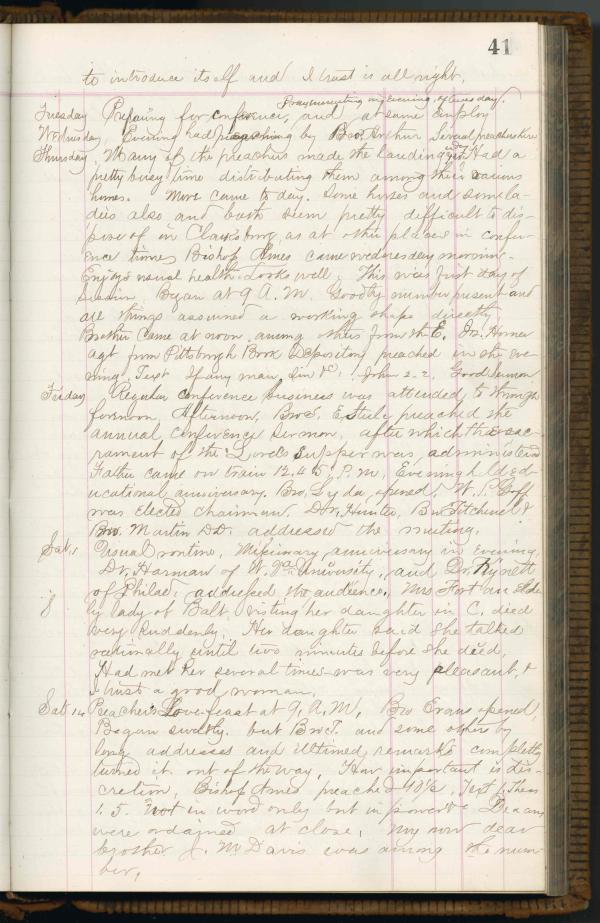 41
to introduce itself and I trust is all right.
Praymeeting in evening of tuesday.
Tuesday Preparing for conference, and at some employ
Wednesday Evening had preaching by Bro. Arthur Several preachers here
Thursday, Many of the preachers made the landing Had a
pretty busy time distributing them among their various
homes. More came to day. Some horses and some la-
dies also and both seem pretty difficult to dis-
pose of in Claysburg as at other places in confer-
ence times, Bishop Ames came wednesday morning.
Enjoys usual health. Looks well. This was first day of
Session Began at 9 A.M. Goodly number present and
all things assumed a working shape directly.
Brother came at noon among others from the E. Dr. Horner
agt from Pittsburgh Book Depository preached in the eve-
ning. Text If any man sin &c. 1 John 2-2 Good Sermon
Friday Regular conference business was attended to through
forenoon, Afternoon, Bro S. E. Steele preached the
annual conference Sermon, after which the sac-
rament of the Lord's Supper was administered
Father came on train 12.45, P.M, Evening held ed-
ucational anniversary. Bro, Lyda, opened, W. P. Goff
was elected chairman, Drs, Hunter, B. Titchenel &
Bro. Martin D.D. addressed the meeting.
Sat, Usual routine, Missionary anniversary in evening,
Dr. Harman of W. Va. University, and Dr. Kynett
of Philad. addressed the audience. Mrs Fort an elder
8 ly lady of Balt. visiting her daughter in C. died
very suddenly. Her daughter said she talked
rationally until two minutes before she died.
Had met her several times was very pleasant, &
I trust a good woman.
Sab 14 Preacher's Love feast at 9, A, M, Bro Evans opened,
Began sweetly. but Bro T. and some others by
long addresses and illtimed, remarks completely
turned it out of the way, How important is dis-
cretion, Bishop Ames preached 10½, Text 1 Thess
1. 5. Not in word only but in power &c Deacons
were ordained at close, my own dear
brother J. M Davis was among the num-
ber,